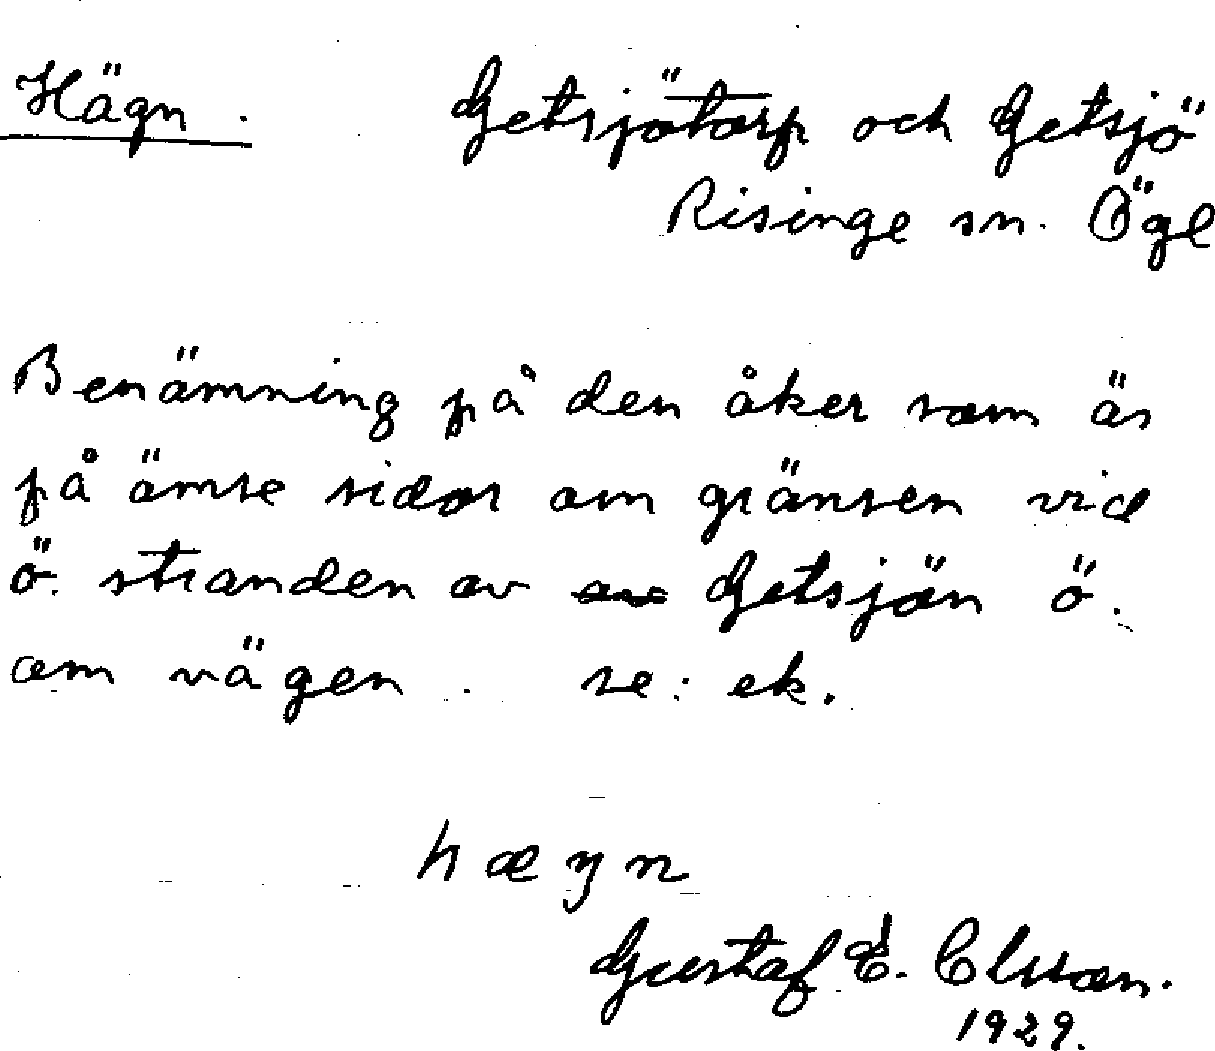 Hägn. Getsjötorp och Getsjö
Risinge sn. Ögl
Benämning på den åker som är
på ömse sidor om gränsen vid
ö. stranden av Getsjön ö.
om vägen. se: ek.
hæŋn
Gustaf E. Olsson.
1929.